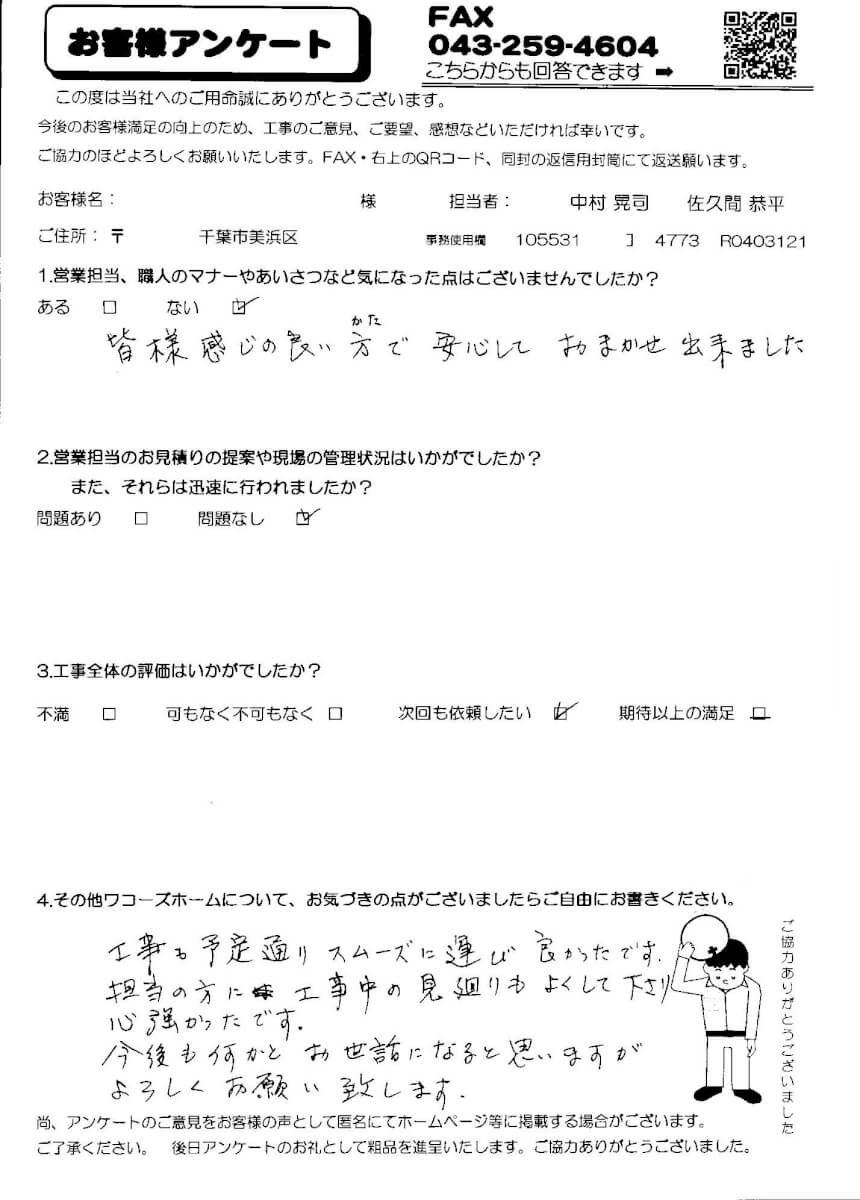 お客様アンケート
FAX
043-259-4604
こちらからも回答できます ➡
この度は当社へのご用命誠にありがとうございます。
今後のお客様満足の向上のため、工事のご意見、ご要望、感想などいただければ幸いです。
ご協力のほどよろしくお願いいたします。FAX・右上のQRコード、同封の返信用封筒にて返送願います。
お客様名： 様 担当者： 中村 晃司 佐久間 恭平
ご住所：〒 千葉市美浜区 事務使用欄 105531 J 4773 R0403121
1.営業担当、職人のマナーやあいさつなど気になった点はございませんでしたか？
ある □ ない ☑
かた
皆様感じの良い方で 安心して おまかせ出来ました
2.営業担当のお見積りの提案や現場の管理状況はいかがでしたか？
また、それらは迅速に行われましたか？
問題あり □ 問題なし ☑
3.工事全体の評価はいかがでしたか？
不満 □ 可もなく不可もなく □ 次回も依頼したい ☑ 期待以上の満足 □
4.その他ワコーズホームについて、お気づきの点がございましたらご自由にお書きください。
工事も予定通りスムーズに運び 良かったです.
担当の方に 工事中の見廻りもよくして下さり
心強かったです.
今後も何かと お世話になると思いますが
よろしくお願い致します.
ご協力ありがとうございました
尚、アンケートのご意見をお客様の声として匿名にてホームページ等に掲載する場合がございます。
ご了承ください。 後日アンケートのお礼として粗品を進呈いたします。ご協力ありがとうございました。